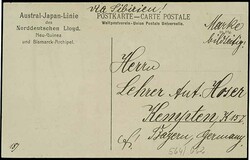 via Sibirien!
Austral-Japan-Linie
des
Norddeutschen Lloyd.
Neu-Guinea
und Bismarck-Archipel.
POSTKARTE — CARTE POSTALE
Weltpostverein - Union Postale Universelle.
Marke
Herrn
Lehrer Ant. Hoser
Kempten
Bayern, Germany